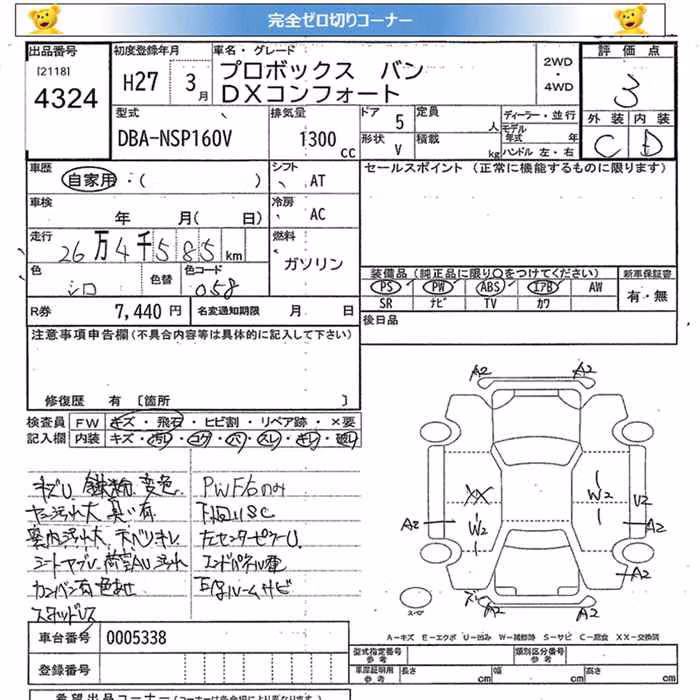 完全ゼロ切りコーナー
出品番号
[2118]
4324
初度登録年月
H27 3月
車名・グレード
プロボックス バン
DXコンフォート
2WD
・
4WD
評価点
3
外装 内装
C D
型式
DBA-NSP160V
排気量
1300 cc
ドア 5
形状 V
定員 人
積載 kg
ディーラー・並行
モデル年式 年
ハンドル 左・右
車歴
自家用・( )
シフト
AT
セールスポイント (正常に機能するものに限ります)
車検
年 月( 日)
冷房
AC
走行
26万4千585 km
燃料
ガソリン
色
シロ
色替
色コード
058
装備品(純正品に限り○をつけてください)
PS PW ABS エアB AW
SR ナビ TV カワ
新車保証書
有・無
R券 7,440 円
名変通知期限 月 日
後日品
注意事項申告欄(不具合内容等は具体的に記入して下さい)
修復歴 有 [箇所 ]
検査員
記入欄
FW キズ・飛石・ヒビ割・リペア跡・×要
内装 キズ・汚れ・コゲ・穴・スレ・キレ・破れ
キズU 鉄粉 変色
ヤニ汚れ大 臭い有
シートアブレ 荷室AU汚れ
カンバン有 色あせ
スタッドレス
PWF/Gのみ
下回りSC
左センターピラーU
A2
A2
XX
W2
W2
U2
A2
A2
A2
A2
A2
スペア
A-キズ E-エクボ U-凹み W-補修跡 S-サビ C-腐食 XX-交換済
車台番号 0005338
登録番号
型式指定番号
参考
類別区分番号
参考
車庫証明用
参考
長さ cm
幅 cm
高さ cm
希望出品コーナー